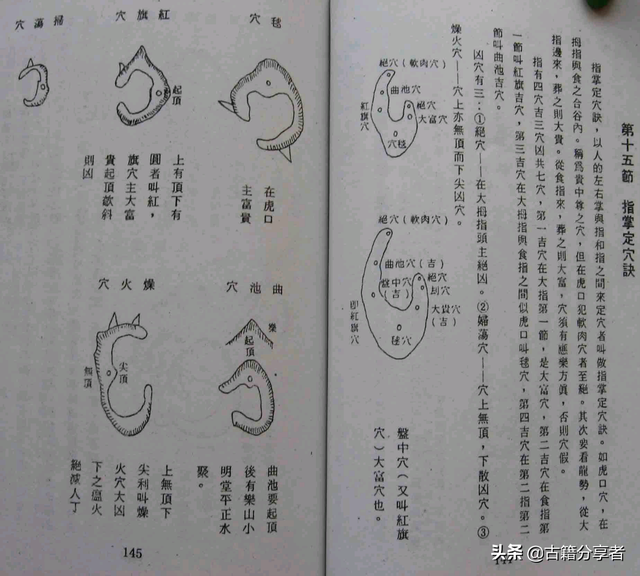 第十五節　指掌定穴訣
指掌定穴訣，以人的左右掌與指和指之間來定穴者叫做指掌定穴訣。如虎口穴，在
拇指與食之合谷內。稱爲貴中尊之穴，但在虎口犯軟肉穴者至絕。其次要看龍勢，從大
指邊來，葬之則大貴。從食指來，葬之則大富，穴須有應樂方眞，否則穴假。
指有四穴吉三穴凶共七穴，第一吉穴在大指第一節，是大富穴，第二吉穴在食指第
一節叫紅旗吉穴，第三吉穴在大拇指與食指之間似虎口叫毬穴，第四吉穴在第二指第二
節叫曲池吉穴。
凶穴有三：①絕穴——在大拇指頭主絕凶。②婦蕩穴——穴上無頂，下散凶穴。③
燥火穴——穴上亦無頂而下尖凶穴。
絕穴（軟肉穴）
曲池穴
絕穴
大富穴
紅旗穴
穴毬
絕穴（軟肉穴）
曲池穴（吉）
盤中穴
（吉）
絕穴
刮穴
大貴穴
（吉）
毬穴
即紅旗穴
盤中穴（又叫紅旗
穴）大富穴也。
穴毬
在虎口
主富貴
穴旗紅
起頂
上有頂下有
圓者叫紅，
旗穴主大富
貴起頂欹斜
則凶
穴蕩掃
穴池曲
樂
起頂
曲池要起頂
後有樂山小
明堂平正水
聚。
穴火燥
尖頂
無頂
上無頂下
尖利叫燥
火穴大凶
下之瘟火
絕滅人丁
145
头条 @古籍分享者